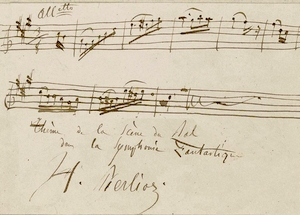 All.tto
Thème de la Scène du Bal
dans la Symphonie Fantastique
H. Berlioz